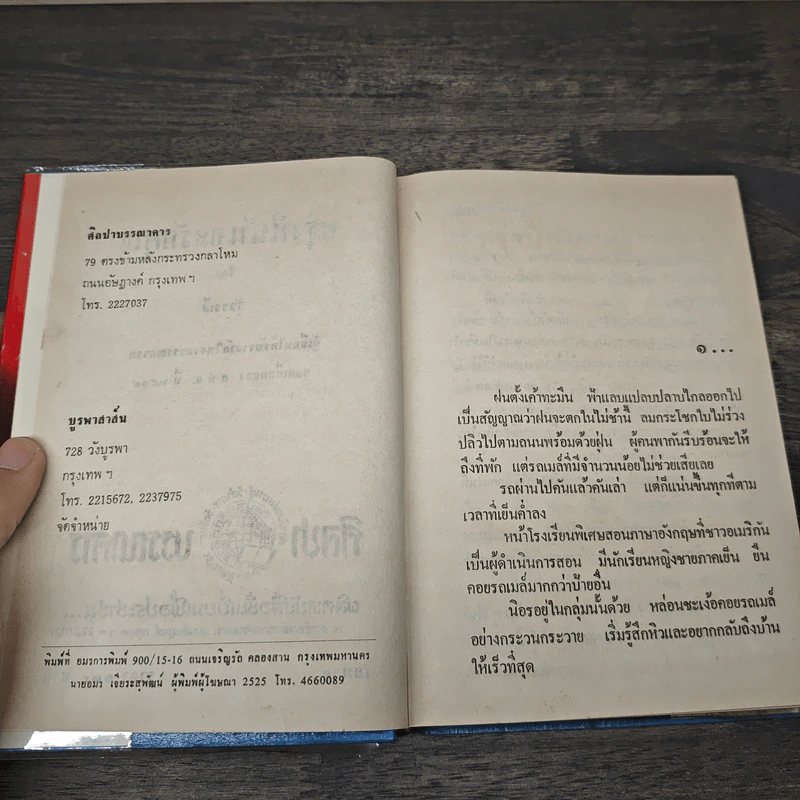 ศิลปาบรรณาคาร
79 ตรงข้ามหลังกระทรวงกลาโหม
ถนนอัษฎางค์ กรุงเทพฯ
โทร. 2227037
บูรพาสาส์น
728 วังบูรพา
กรุงเทพฯ
โทร. 2215672, 2237975
จัดจำหน่าย
พิมพ์ที่ อมรการพิมพ์ 900/15-16 ถนนเจริญรัถ คลองสาน กรุงเทพมหานคร
นายอมร เจียระสุพัฒน์ ผู้พิมพ์ผู้โฆษณา 2525 โทร. 4660089
๑...
ฝนตั้งเค้าทะมึน ฟ้าแลบแปลบปลาบไกลออกไป
เป็นสัญญาณว่าฝนจะตกในไม่ช้านี้ ลมกระโชกใบไม้ร่วง
ปลิวไปตามถนนพร้อมด้วยฝุ่น ผู้คนพากันรีบร้อนจะให้
ถึงที่พัก แต่รถเมล์ที่มีจำนวนน้อยไม่ช่วยเสียเลย
รถผ่านไปคันแล้วคันเล่า แต่ก็แน่นขึ้นทุกทีตาม
เวลาที่เย็นค่ำลง
หน้าโรงเรียนพิเศษสอนภาษาอังกฤษที่ชาวอเมริกัน
เป็นผู้ดำเนินการสอน มีนักเรียนหญิงชายภาคเย็น ยืน
คอยรถเมล์มากกว่าป้ายอื่น
นิอรอยู่ในกลุ่มนั้นด้วย หล่อนชะเง้อคอยรถเมล์
อย่างกระวนกระวาย เริ่มรู้สึกหิวและอยากกลับถึงบ้าน
ให้เร็วที่สุด